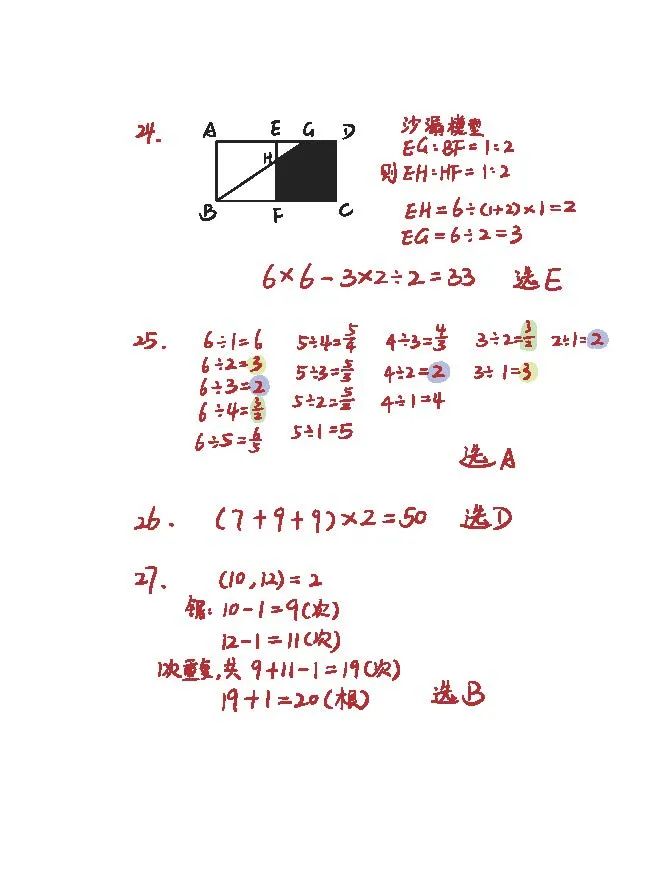 24. A E G D
H
B F C
沙漏模型
EG:BF=1:2
则EH:HF=1:2
EH=6÷(1+2)×1=2
EG=6÷2=3
6×6-3×2÷2=33 选E
25. 6÷1=6 5÷4=5/4 4÷3=4/3 3÷2=3/2 2÷1=2
6÷2=3 5÷3=5/3 4÷2=2 3÷1=3
6÷3=2 5÷2=5/2 4÷1=4
6÷4=3/2 5÷1=5
6÷5=6/5
选A
26. (7+9+9)×2=50 选D
27. (10,12)=2
锯:10-1=9(次)
12-1=11(次)
1次重复,共 9+11-1=19(次)
19+1=20(根) 选B